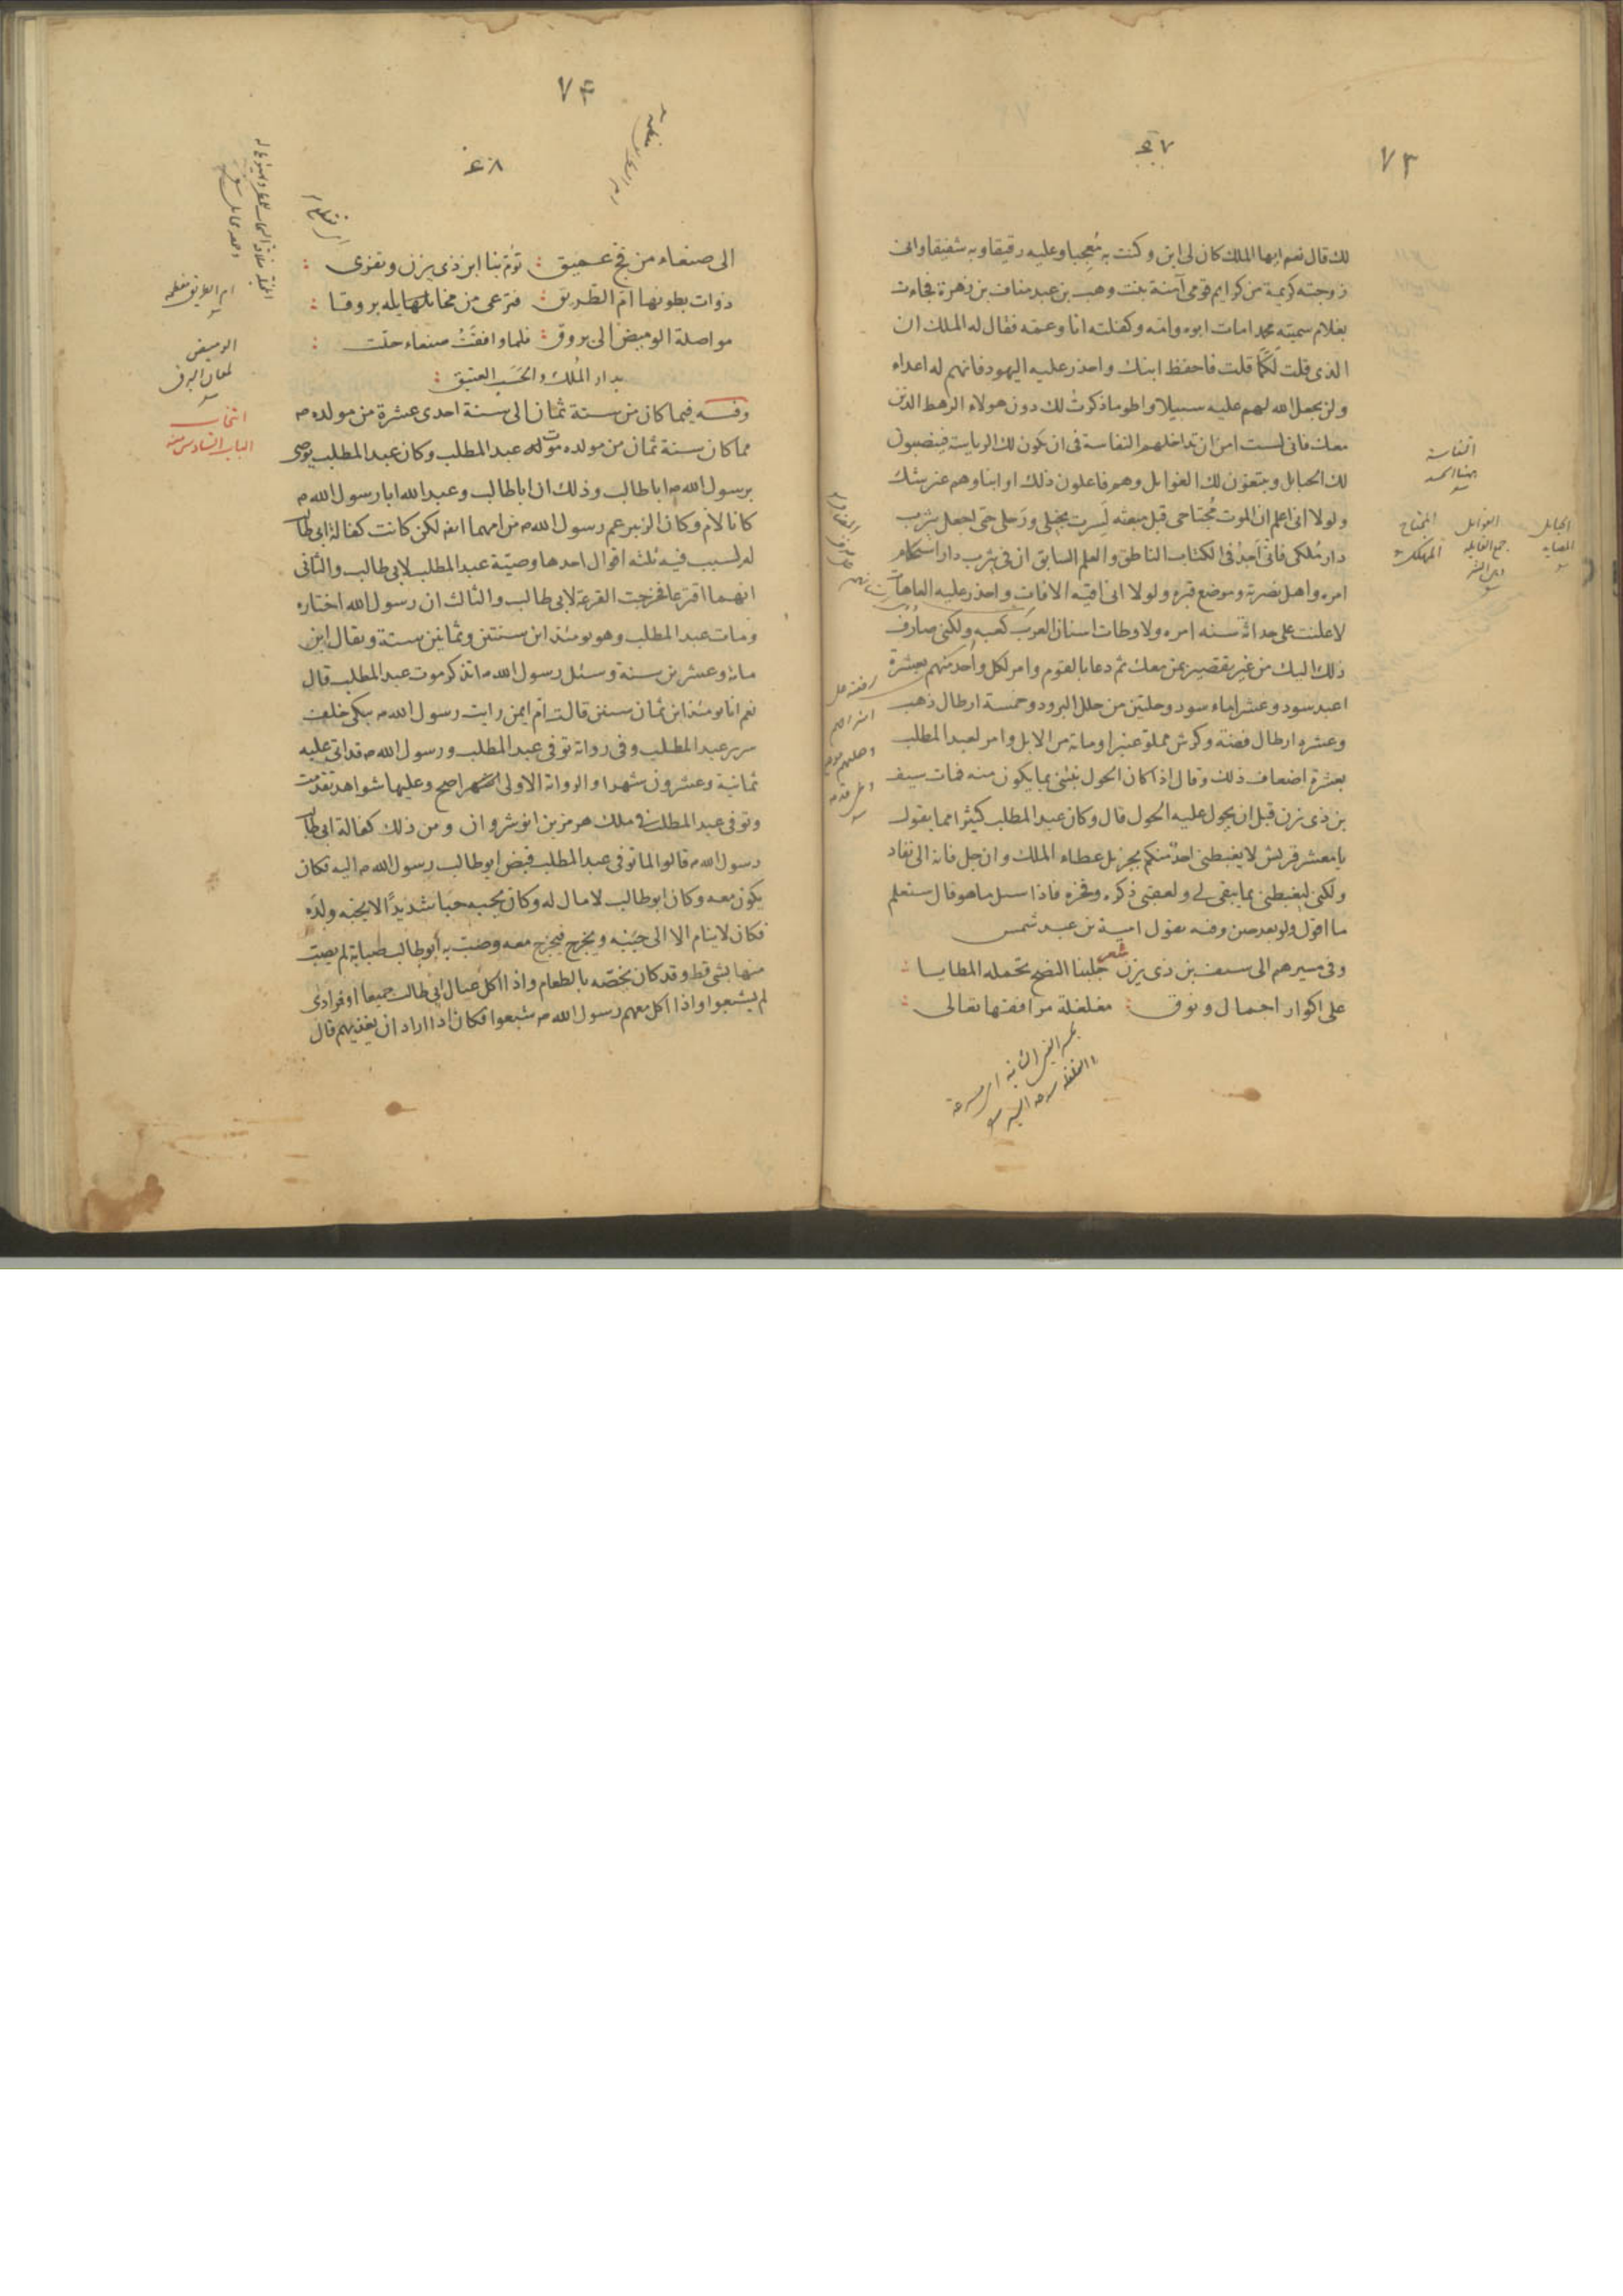 ٧٣
٤٧
لك قال نعم ايها الملك كان لى ابن وكنت به مُعجبا وعليه رقيقا وبه شفيقا وانى
زوجته كريمة من كرايم قومى آمنة بنت وهب بن عبد مناف بن زهرة فجاءت
بغلام سميته محمد امات ابوه وامه وكفلته انا وعمه فقال له الملك ان
الذى قلت لك كما قلت فاحفظ ابنك واحذر عليه اليهود فانهم له اعداء
ولن يجعل الله لهم عليه سبيلا واطو ما ذكرتُ لك دون هولاء الرهط الذين
معك فانى لست امن ان تداخلهم النفاسة فى ان يكون لك الرياسة فينصبون
لك الحبايل ويبتغون لك الغوايل وهم فاعلون ذلك او ابناوهم غير شك
ولولا انى اعلم ان الموت مُجتاحى قبل مبعثه لسرت بخيلى ورَجلى حتى اجعل يثرب
دار مُلكى فانى اجدُ فى الكتاب الناطق والعلم السابق ان فى يثرب دار استحكام
امره واهل نصرته وموضع قبره ولولا انى اقيه الافات واحذر عليه العاهات
لاعلنت على حداثة سنه امره ولاوطات اسنان العرب كعبه ولكنى صارف
ذلك اليك من غير تقصير بمن معك ثم دعا بالقوم وامر لكل واحد منهم بعشرة
اعبد سود وعشر اماء سود وحلتين من حلل البرود وخمسة ارطال ذهب
وعشره ارطال فضة وكرش مملوة عنبرا ومائة من الابل وامر لعبد المطلب
بعشرة اضعاف ذلك وقال اذا كان الحول تمئنى بما يكون منه فمات سيف
بن ذى يزن قبل ان يحول عليه الحول قال وكان عبد المطلب كثيرا مما يقول
يا معشر قريش لا يغبطنى احدٌ منكم بجزيل عطاء الملك وان جل فانه الى نفاد
ولكن ليغبطنى بما يبقى لى ولعقبى ذكره وفخره فاذا سئل ما هو قال ستعلم
ما اقول ولو بعد حين وفيه يقول امية بن عبد شمس
وفى مسيرهم الى سيف بن ذى يزن شعر جلبنا النصح تحمله المطايا
على اكوار اجمال ونوق مغلغلة مرافقها تعالى
النفاسة
الحبايل
المصايد
الغوايل
جمع الغايلة
المجتاح
المهلك
٧٤
٤٨
الى صنعاء من فج عميق توم بنا ابن ذى يزن وتفرى
ذوات بطونها ام الطريق فترعى من مخايلها بله بروقا
مواصلة الوميض الى بروق فلما وافقَتْ صنعاء حلت
بدار المُلك والحَسَب العتيق
وفيه فيما كان من سنة ثمان الى سنة احدى عشرة من مولده ص
مما كان سنة ثمان من مولده موت عبد المطلب وكان عبد المطلب يوصى
برسول الله ص ابا طالب وذلك ان ابا طالب وعبد الله ابا رسول الله ص
كانا لام وكان الزبير عم رسول الله ص من امهما ايضا لكن كانت كفالة ابى طالب
له لسبب فيه ثلثه اقوال احدها وصيّة عبد المطلب لابى طالب والثانى
انهما اقترعا فخرجت القرعة لابى طالب والثالث ان رسول الله اختاره
ومات عبد المطلب وهو يومئذ ابن سنتين وثمانين سنة ويقال ابن
مائة وعشرين سنة وسئل رسول الله ص اتذكر موت عبد المطلب قال
نعم انا يومئذ ابن ثمان سنين قالت ام ايمن رايت رسول الله ص يبكى خلف
سرير عبد المطلب وفى رواية توفى عبد المطلب ورسول الله ص قد اتى عليه
ثمانية وعشرون شهرا والرواية الاولى اصح وعليها شواهد تقدمت
وتوفى عبد المطلب فى ملك هرمز بن انوشروان ومن ذلك كفالة ابى طالب
رسول الله ص قالوا لما توفى عبد المطلب قبض ابو طالب رسول الله ص اليه فكان
يكون معه وكان ابو طالب لا مال له وكان يحبه حبّا شديدًا لا يحبه ولدَه
فكان لا ينام الا الى جنبه ويخرج فيخرج معه وصب به ابو طالب صبابة لم يصب
منها بشى قط وقد كان يخصّه بالطعام واذا اكل عيال ابى طالب جميعا او فرادى
لم يشبعوا واذا اكل معهم رسول الله ص شبعوا فكان اذا اراد ان يغذيهم قال
ام الطريق معظمه
الوميض
لمعان البرق
انتخاب
الباب السادس منه